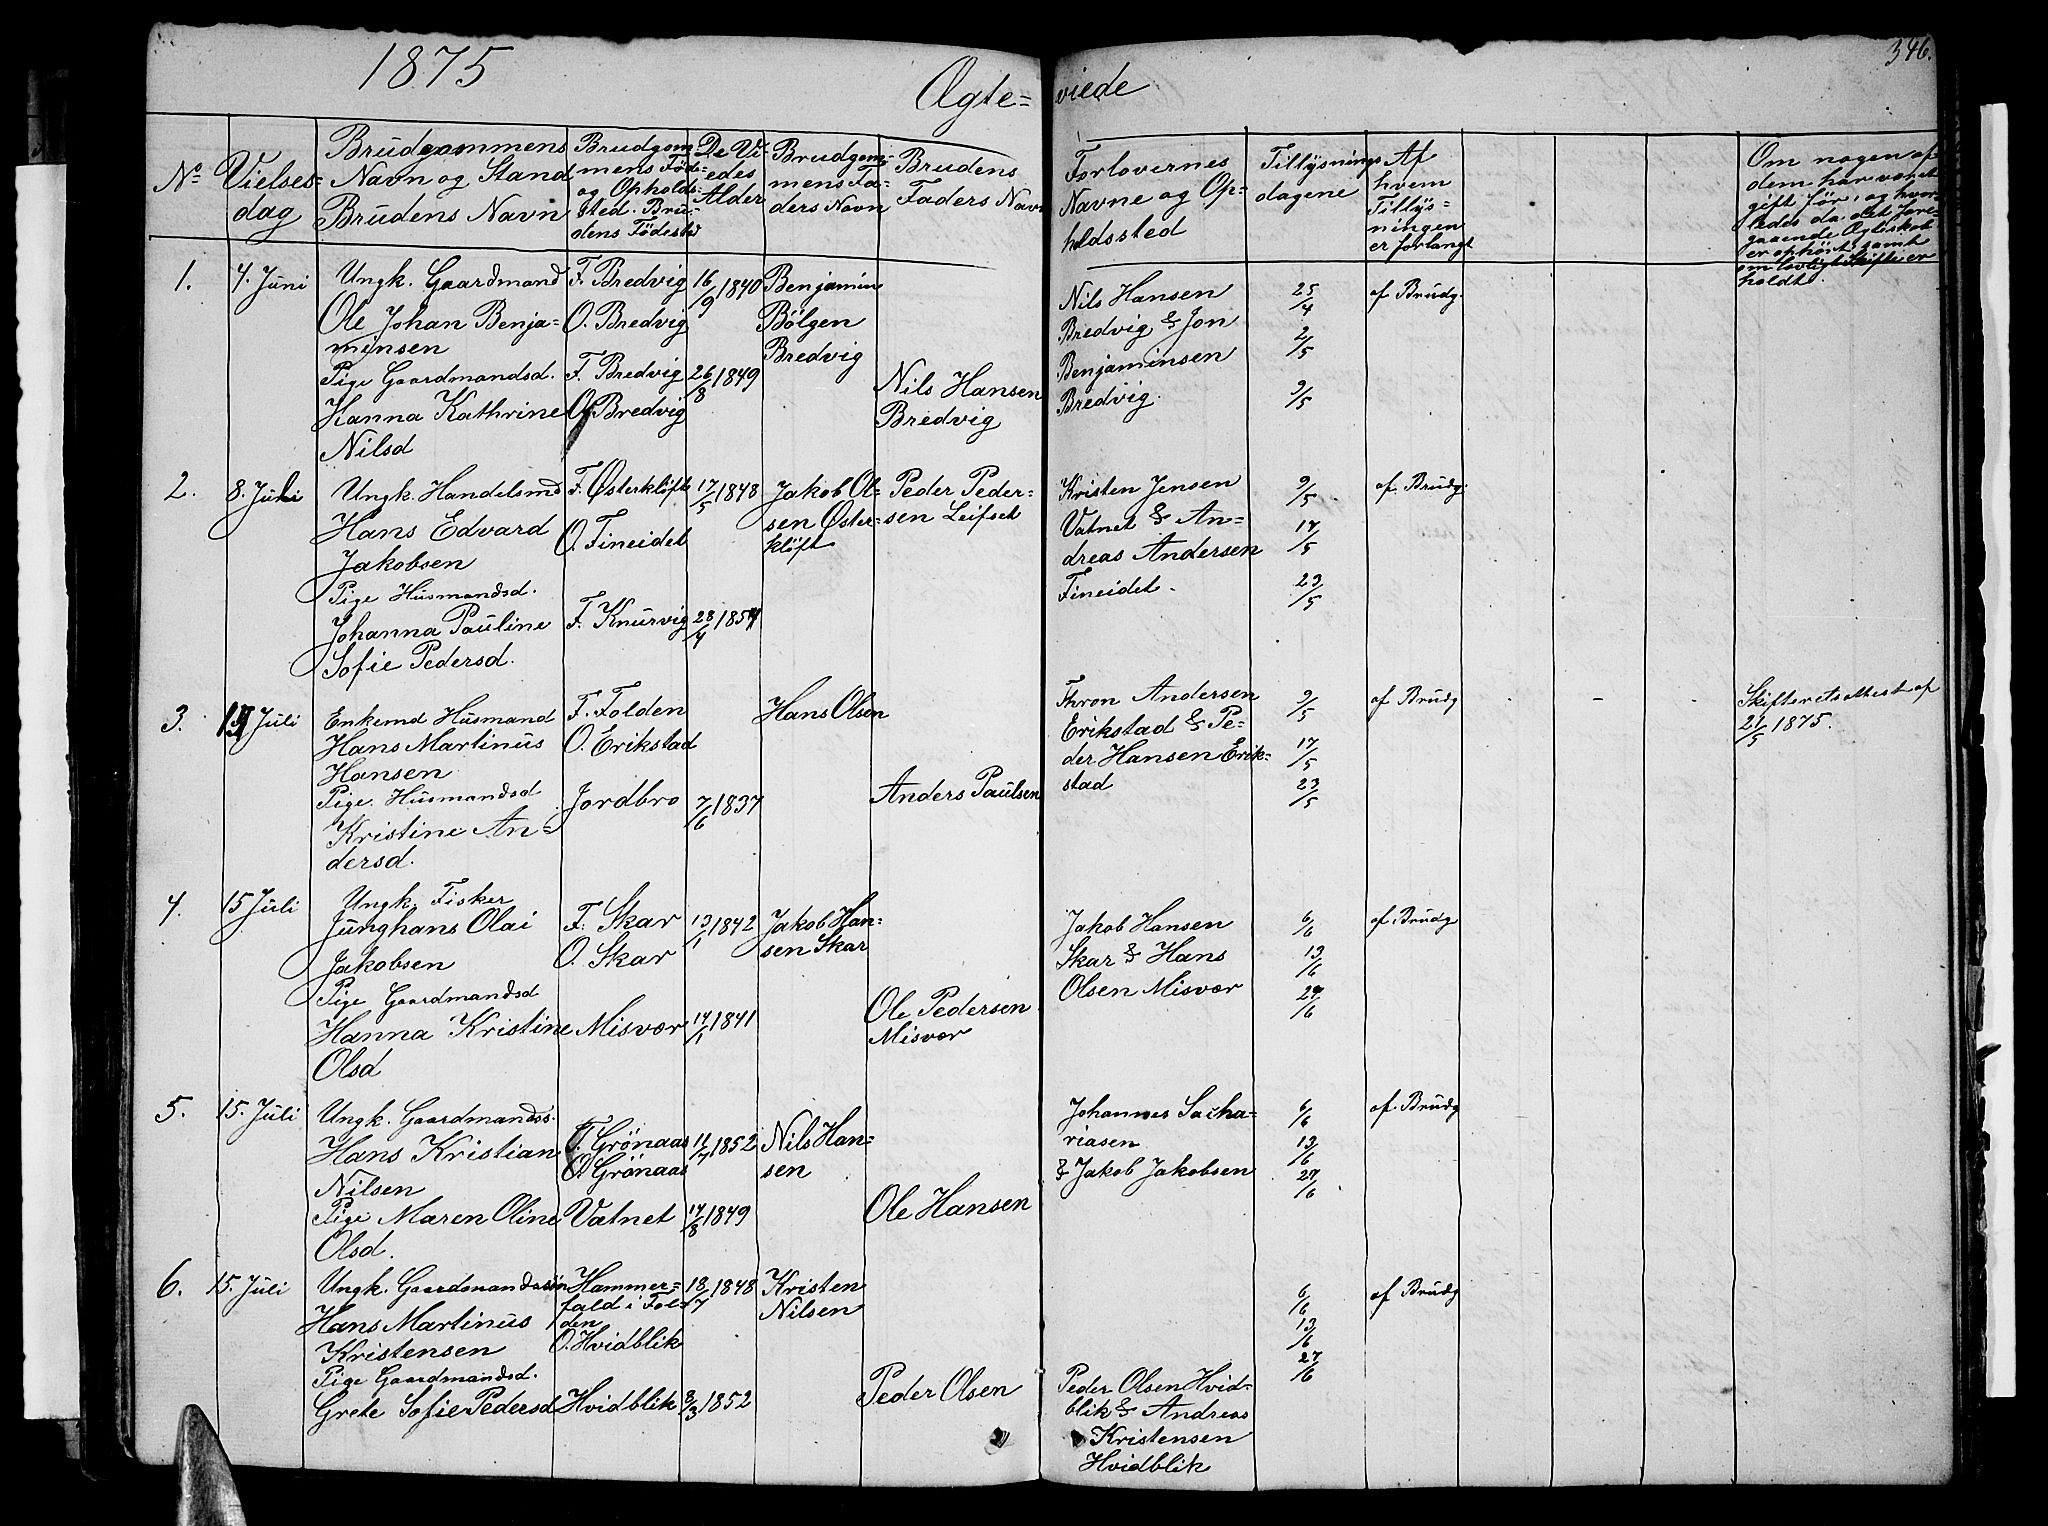 1875
346.
Ægte= viede
No
Vielses=
dag
Brudgommens
Navn og Stand
Brudens Navn
Brudgom
mens Föde=
og Opholds=
sted. Bru=
dens Födested
De Vi=
edes
Alder
Brudgom=
mens Fa=
ders Navn
Brudens
Faders Navn
Forlovernes
Navne og Op=
holdssted
Tillysnings
dagene
Af
hvem
Tillys=
ningen
er forlangt
Om nogen af
dem har været
gift för, og hvor=
ledes da det fore=
gaaende Ægteskab
er ophört, samt
om lovligt Skifte er
holdt.
1.
7. Juni
Ungk. Gaardmand
Ole Johan Benja=
minsen
Pige Gaardmandsd.
Hanna Kathrine
Nilsd
F. Bredvig
O. Bredvig
F. Bredvig
O. Bredvig
16/9 1840
26/8 1849
Benjamin
Bölgen
Bredvig
Nils Hansen
Bredvig
Nils Hansen
Bredvig & Jon
Benjaminsen
Bredvig.
25/4
2/5
9/5
af Brudg.
2.
8. Juli
Ungk. Handelsmd
Hans Edvard
Jakobsen
Pige Husmandsd.
Johanna Pauline
Sofie Pedersd.
F. Østerklöft
O. Fineidet
F. Knurvig
17/5 1848
28/4 1854
Jakob Ol=
sen Øster=
klöft
Peder Peder=
sen Leifset
Kristen Jensen
Vatnet & An=
dreas Andersen
Fineidet.
9/5
17/5
23/5
af. Brudg.
3.
Juli
Enkemd Husmand
Hans Martinus
Hansen
Pige. Husmandsd
Kristine An=
dersd.
F. Folden
O. Erikstad
Jordbro
7/6 1837
Hans Olsen
Anders Paulsen
Thron Andersen
Erikstad & Pe=
der Hansen Erik=
stad
9/5
17/5
23/5
af Brudg
Skifteretsattest af
21/5 1875.
4.
15 Juli
Ungk. Fisker
Junghans Olai
Jakobsen
Pige Gaardmandsd
Hanna Kristine
Olsd
F. Skar
O. Skar
Misvær
13/1 1842
14/1 1841
Jakob Han=
sen Skar
Ole Pedersen
Misvær
Jakob Hansen
Skar & Hans
Olsen Misvær
6/6
13/6
27/6
af. Brudg
5.
15. Juli
Ungk. Gaardmandss.
Hans Kristian
Nilsen
Pige Maren Oline
Olsd.
F. Grönaas
O. Grönaas
Vatnet
11/4 1852
14/8 1849
Nils Han=
sen
Ole Hansen
Johannes Sacha=
riasen
& Jakob Jakobsen
6/6
13/6
27/6
af. Brudg
6.
15. Juli
Ungk. Gaardmandssön
Hans Martinus
Kristensen
Pige Gaardmandsd.
Grete Sofie Pedersd
Hammer=
fald i Fol=
den
O. Hvidblik
Hvidblik
18/7 1848
8/3 1852
Kristen
Nilsen
Peder Olsen
Peder Olsen Hvid=
blik & Andreas
Kristensen
Hvidblik
6/6
13/6
27/6
af Brudg